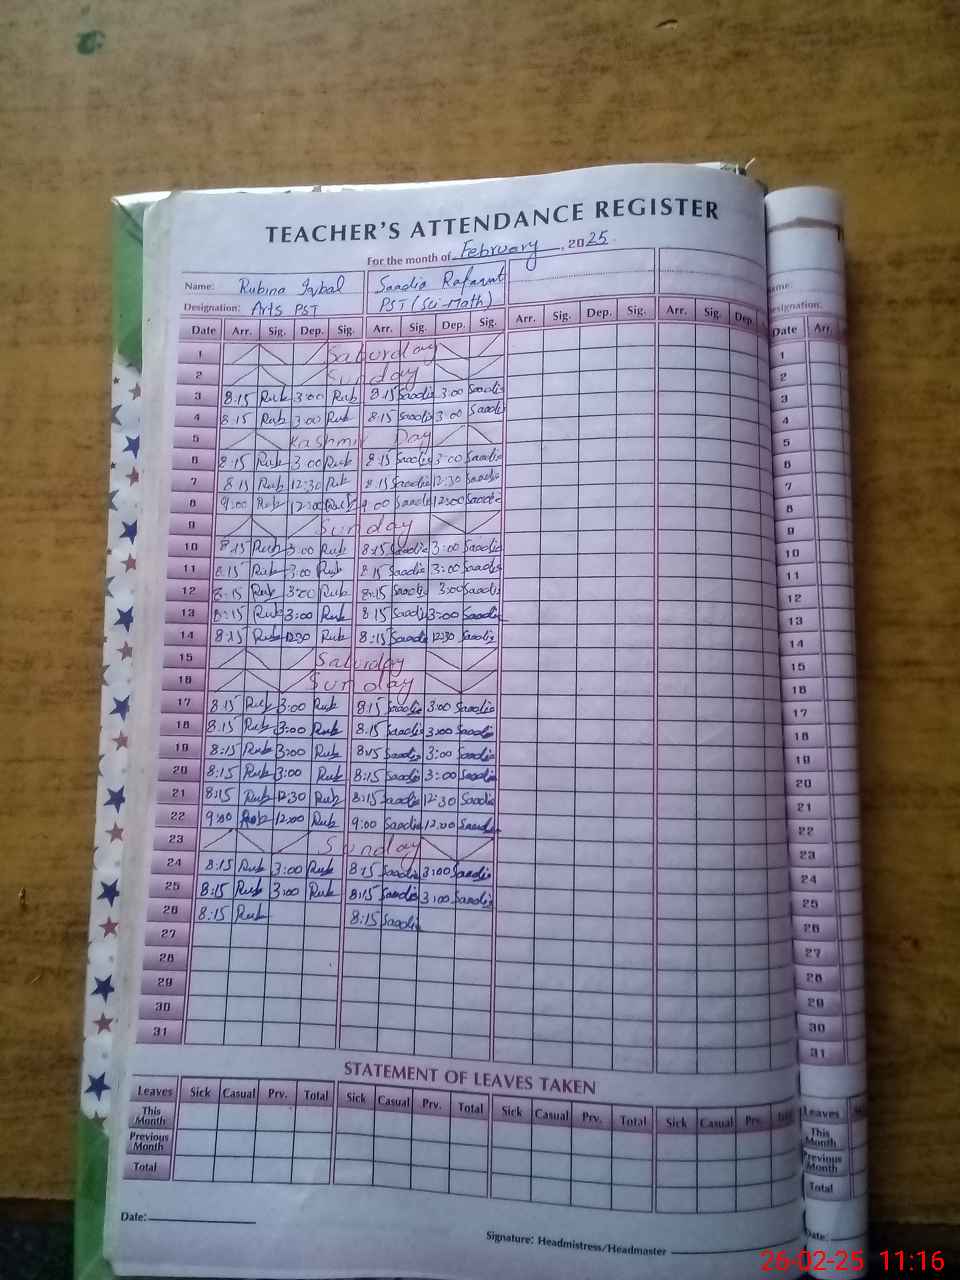 TEACHER'S ATTENDANCE REGISTER
For the month of February, 2025.
Name: Rubina Iqbal Saadia Rafaqat
Designation: Arts PST PST (Sci-Math)
Date Arr. Sig. Dep. Sig. Arr. Sig. Dep. Sig. Arr. Sig. Dep. Sig. Arr. Sig. Dep.
1 Saturday
2 Sunday
3 8:15 Rub 3:00 Rub 8:15 Saadia 3:00 Saadia
4 8:15 Rub 3:00 Rub 8:15 Saadia 3:00 Saadia
5 Kashmir Day
6 8:15 Rub 3:00 Rub 8:15 Saadia 3:00 Saadia
7 8:15 Rub 12:30 Rub 8:15 Saadia 12:30 Saadia
8 9:00 Rub 12:00 Rub 9:00 Saadia 12:00 Saadia
9 Sunday
10 8:15 Rub 3:00 Rub 8:15 Saadia 3:00 Saadia
11 8:15 Rub 3:00 Rub 8:15 Saadia 3:00 Saadia
12 8:15 Rub 3:00 Rub 8:15 Saadia 3:00 Saadia
13 8:15 Rub 3:00 Rub 8:15 Saadia 3:00 Saadia
14 8:15 Rub 12:30 Rub 8:15 Saadia 12:30 Saadia
15 Saturday
16 Sunday
17 8:15 Rub 3:00 Rub 8:15 Saadia 3:00 Saadia
18 8:15 Rub 3:00 Rub 8:15 Saadia 3:00 Saadia
19 8:15 Rub 3:00 Rub 8:15 Saadia 3:00 Saadia
20 8:15 Rub 3:00 Rub 8:15 Saadia 3:00 Saadia
21 8:15 Rub 12:30 Rub 8:15 Saadia 12:30 Saadia
22 9:00 Rub 12:00 Rub 9:00 Saadia 12:00 Saadia
23 Sunday
24 8:15 Rub 3:00 Rub 8:15 Saadia 3:00 Saadia
25 8:15 Rub 3:00 Rub 8:15 Saadia 3:00 Saadia
26 8:15 Rub 8:15 Saadia
27
28
29
30
31
STATEMENT OF LEAVES TAKEN
Leaves Sick Casual Prv. Total Sick Casual Prv. Total Sick Casual Prv. Total Sick Casual Prv. Total
This Month
Previous Month
Total
Date:
Signature: Headmistress/Headmaster
ame:
esignation:
Date Arr.
1
2
3
4
5
6
7
8
9
10
11
12
13
14
15
16
17
18
19
20
21
22
23
24
25
26
27
28
29
30
31
Leaves
This
Month
Previous
Month
Total
Date:
26-02-25 11:16